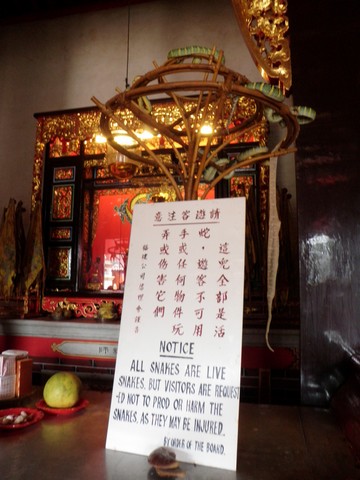 請遊客注意
這兒全部是活
蛇，遊客不可用
手或任何物件玩
弄或傷害它們
福建公司信理
NOTICE
ALL SNAKES ARE LIVE
SNAKES, BUT VISITORS ARE REQUEST
-ED NOT TO PROD OR HARM THE
SNAKES, AS THEY MAY BE INJURED..
BY ORDER OF THE BOARD.